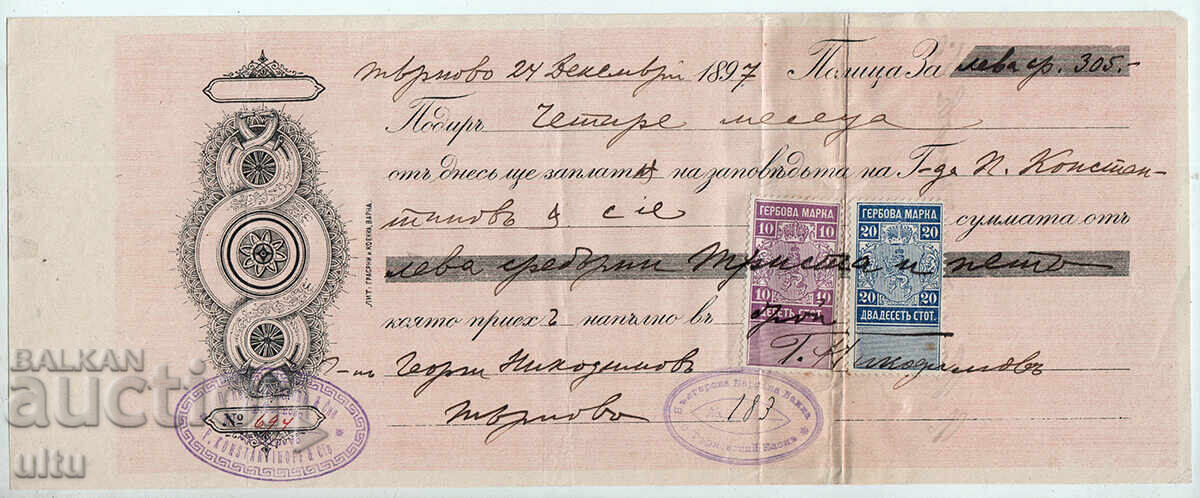 Търново 24 Декемврий 1897 Полица За лева ср. 305.-
Подиръ Четире месеца
отъ днесъ ще заплатя на заповѣдьта на Г-да П. Констан-
тиновъ & cie суммата отъ
лева сребърни триста и петь
която приехъ напълно въ брой
Г-нъ Георги Никодимовъ Г. Никодимовъ
Търново
ГЕРБОВА МАРКА
10 10
10 10
ДЕСЕТЬ
ГЕРБОВА МАРКА
20 20
20 20
ДВАДЕСЕТЬ СТОТ.
ЛИТ: ГРАБРНИ И КОЕНКА, ВАРНА.
№ 694
P. KONSTANTINOFF & Cie
Българска Народна Банка
183
BALKAN
auction
ultu